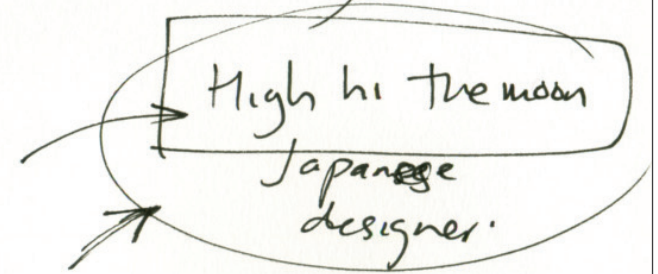 High hi the moon
Japanese
designer.